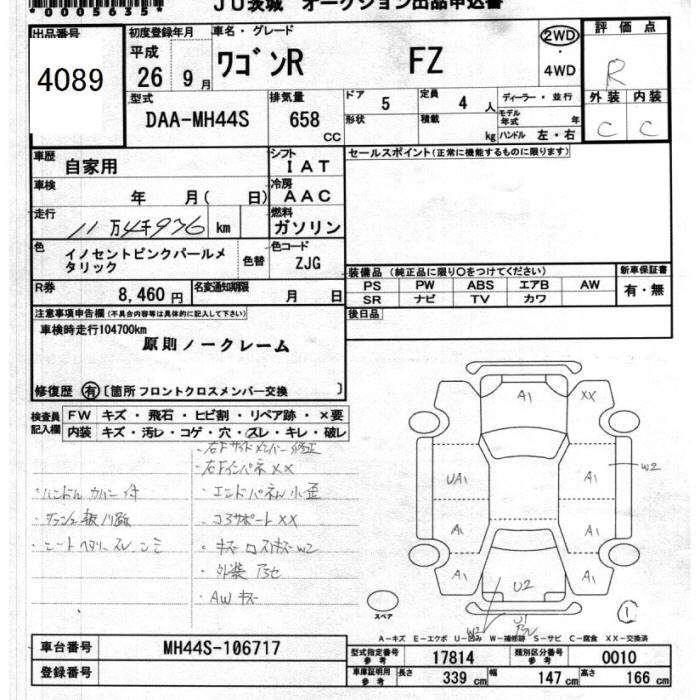 *0005635*
JU茨城 オークション出品申込書
出品番号
4089
初度登録年月
平成
26 9月
車名・グレード
ワゴンR FZ
2WD
4WD
評価点
R
外装 内装
C C
型式
DAA-MH44S
排気量
658
CC
ドア 5
形状
定員 4 人
積載 kg
ディーラー・並行
モデル年式 年
ハンドル 左・右
車歴
自家用
シフト
IAT
車検
年 月( 日)
冷房
AAC
走行
11万4千936 km
燃料
ガソリン
色
イノセントピンクパールメタリック
色替
色コード
ZJG
R券
8,460 円
名変通知期限
月 日
セールスポイント(正常に機能するものに限ります)
装備品(純正品に限り○をつけてください)
PS PW ABS エアB AW
SR ナビ TV カワ
新車保証書
有・無
後日品
注意事項申告欄(不具合内容等は具体的に記入して下さい)
車検時走行104700km
原則ノークレーム
修復歴 有 [箇所 フロントクロスメンバー交換 ]
検査員記入欄
FW キズ・飛石・ヒビ割・リペア跡・×要
内装 キズ・汚レ・コゲ・穴・スレ・キレ・破レ
・右Fサイドメンバー修正
・右Fインパネ XX
・ハンドルカバー付
・エンドパネル小歪
・コアサポート XX
・シートヘタリ スレ シミ
・外装
・AWキズ
A1 XX
UA1 A1 W2
A1 A1
A1 U2 A1
W2 U1
1
スペア
A-キズ E-エクボ U-凹み W-補修跡 S-サビ C-腐食 XX-交換済
車台番号
MH44S-106717
登録番号
型式指定番号 参考
17814
類別区分番号 参考
0010
車庫証明用 参考
長さ 339 cm
幅 147 cm
高さ 166 cm